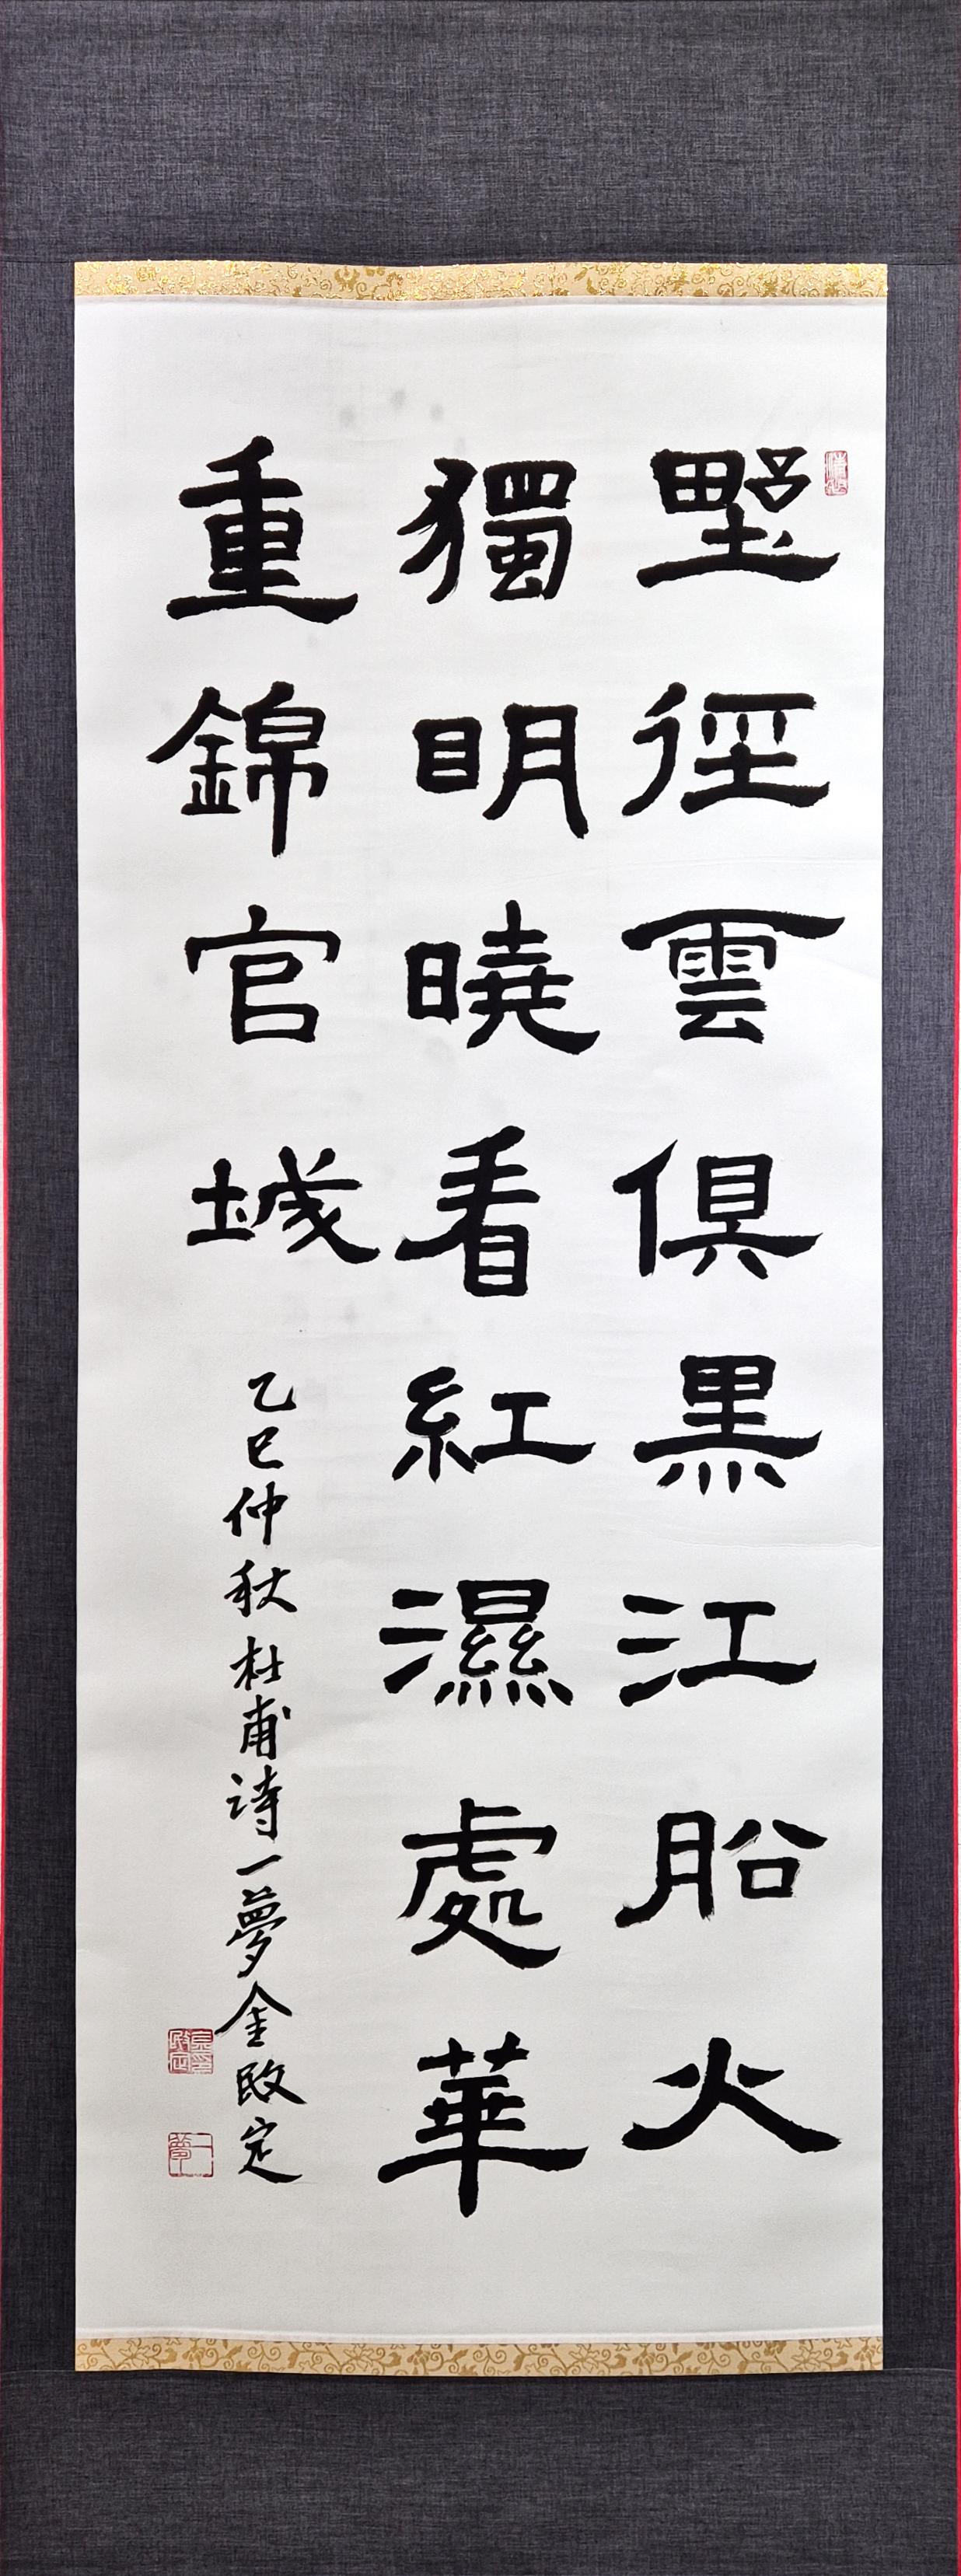 野徑雲俱黑江船火
獨明曉看紅濕處華
重錦官城
乙巳仲秋杜甫詩一夢金敃定